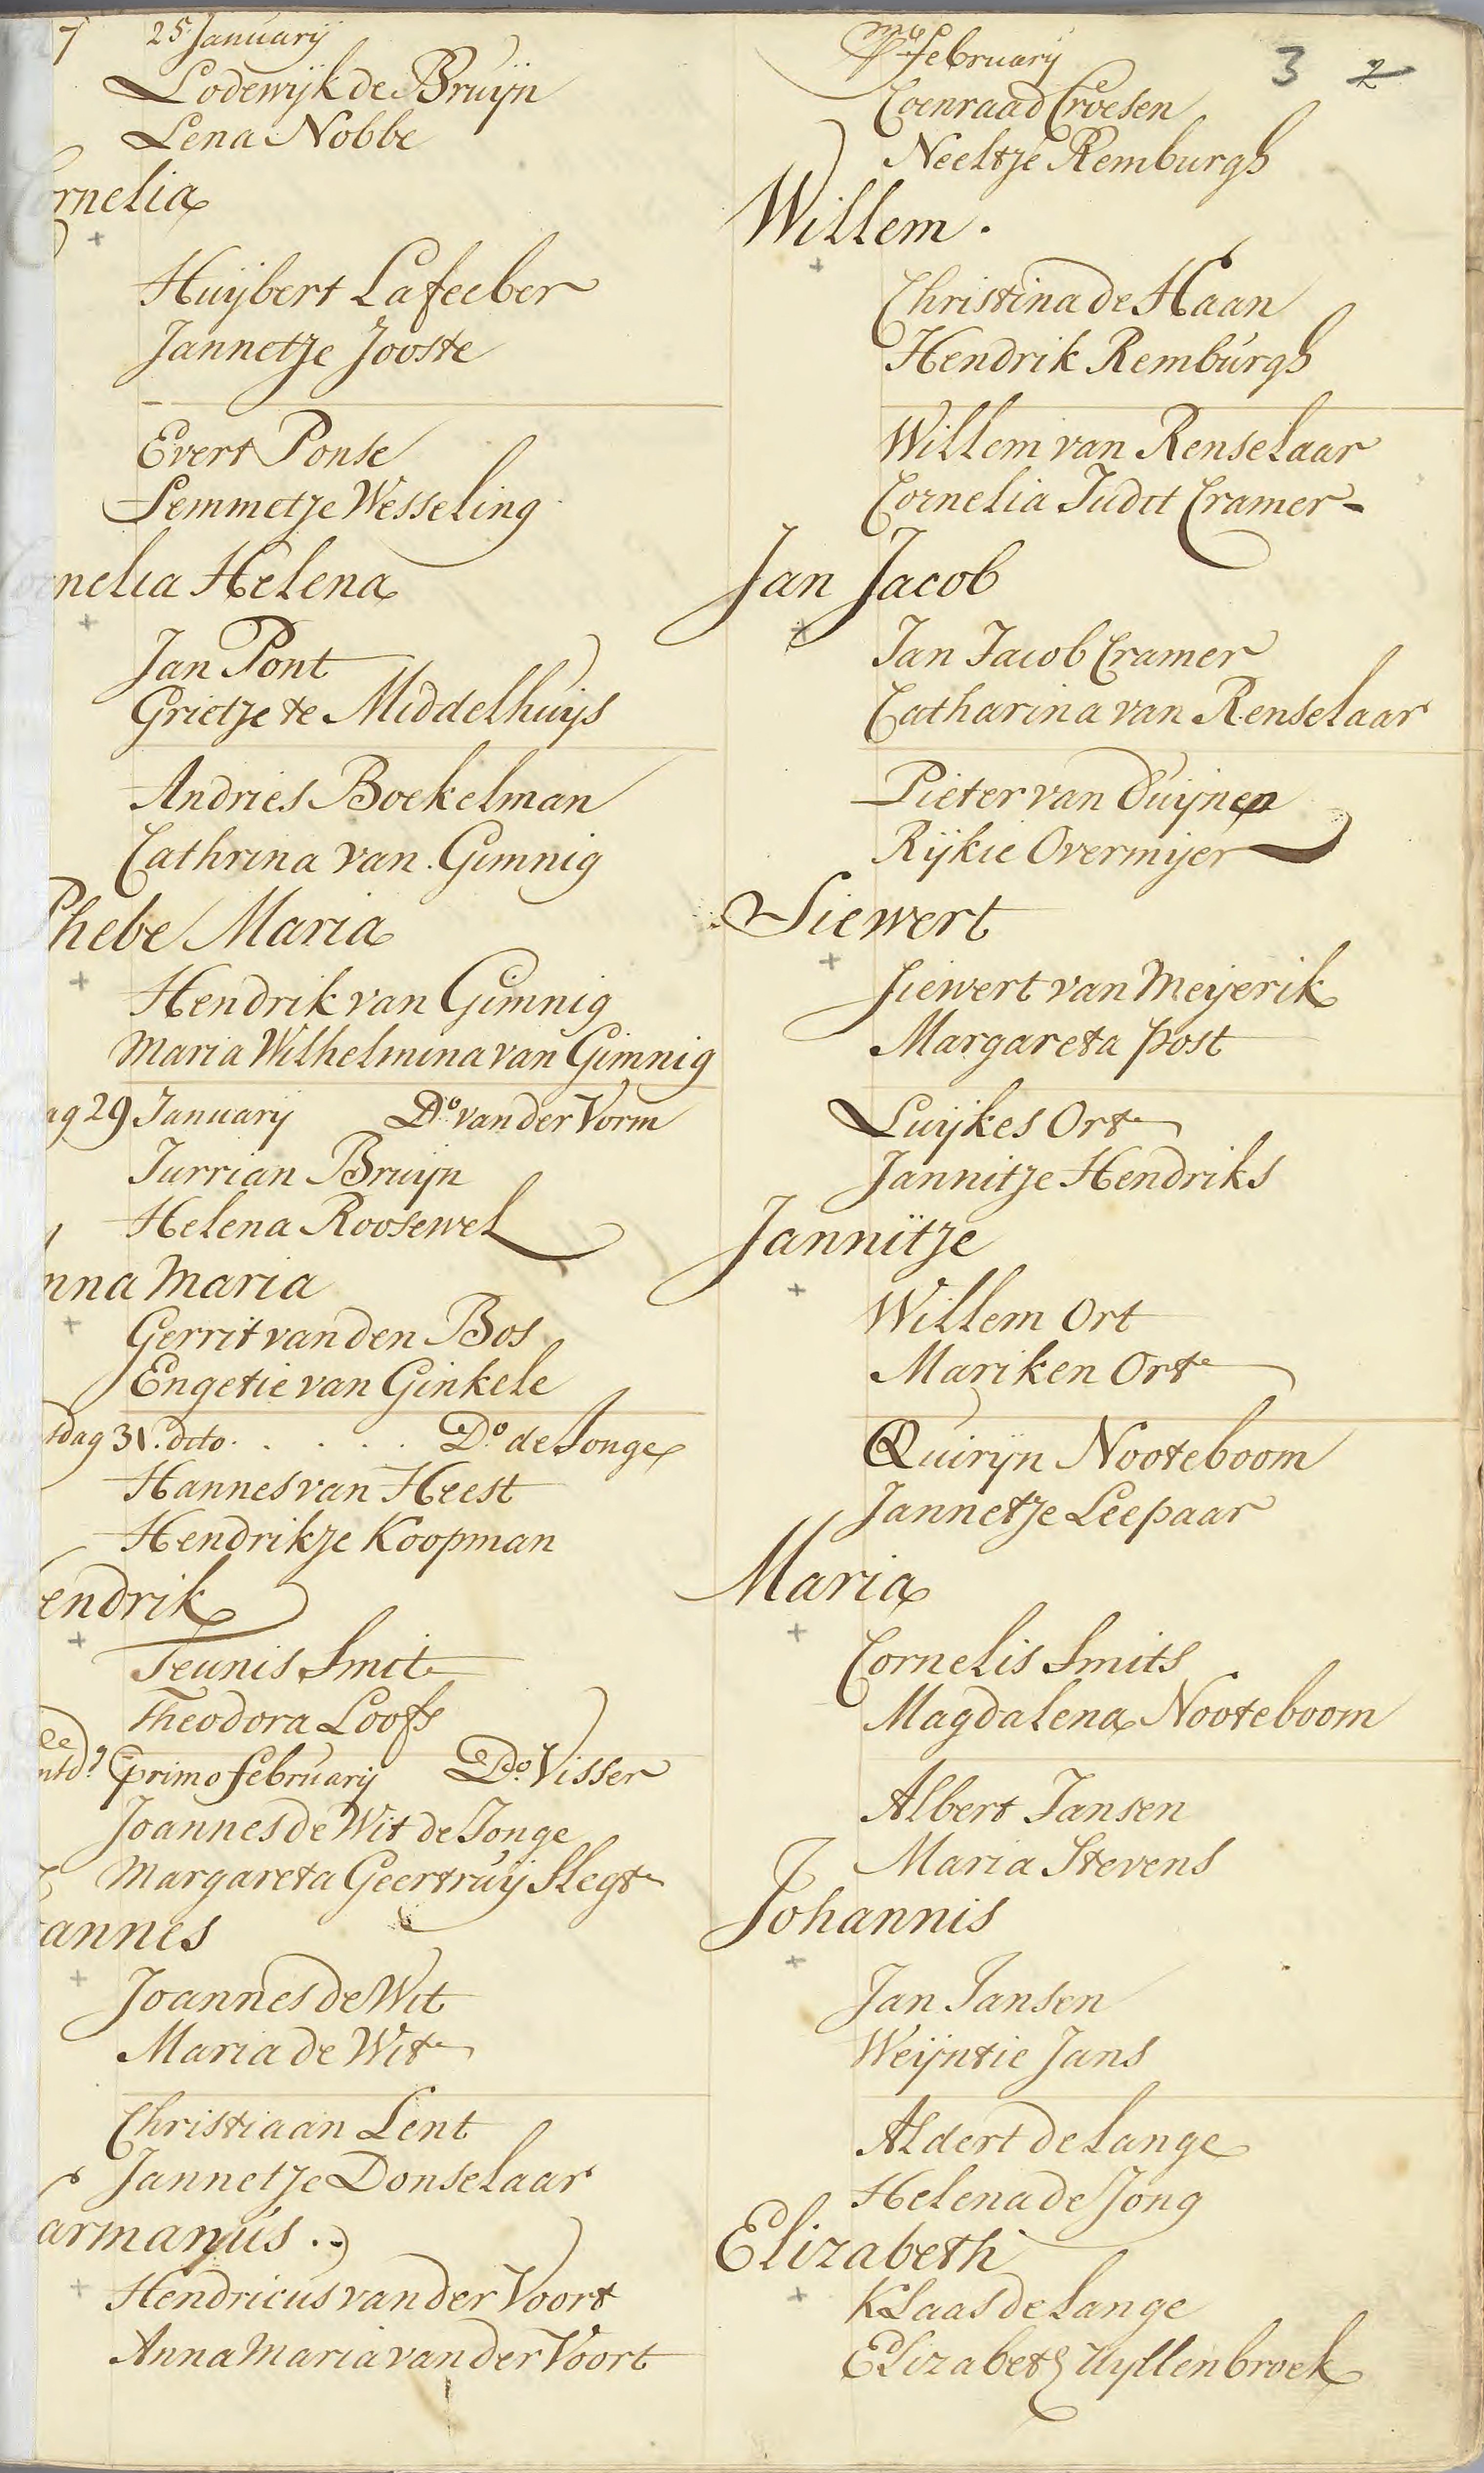 25 Januarij
Lodewijk de Bruijn
Lena Nobbe
rnelia
Huijbert Lafeeber
Jannetje Jooste
Evert Ponse
Lemmetje Wesseling
nelia Helena
Jan Pont
Grietje te Middelhuijs
Andries Boekelman
Cathrina van Gimnig
Phebe Maria
Hendrik van Gimnig
Maria Wilhelmina van Gimnig
ag 29 Januarij Do. van der Vorm
Jurrian Bruijn
Helena Roosewel
nna Maria
Gerrit van den Bos
Engetie van Ginkele
sdag 31. dito . . . . . Do. de Jonge
Hannes van Heest
Hendrikje Koopman
endrik
Teunis Smit
Theodora Loofs
primo februarij Do. Visser
Joannes de Wit de Jonge
Margareta Geertruij Slegt
annes
Joannes de Wit
Maria de Wit
Christiaan Lent
Jannetje Donselaar
armanus
Hendricus van der Voort
Anna Maria van der Voort
february
3 2
Coenraad Croesen
Neeltje Remburgh
Willem.
Christina de Haan
Hendrik Remburgh
Willem van Renselaar
Cornelia Judit Cramer
Jan Jacob
Jan Jacob Cramer
Catharina van Renselaar
Pieter van Duijnen
Rijkie Overmijer
Siewert
Siewert van Meijerik
Margareta post
Luijkes Ort
Jannitje Hendriks
Jannitje
Willem Ort
Mariken Ort
Quirijn Nooteboom
Jannetje Leepaar
Maria
Cornelis Smits
Magdalena Nooteboom
Albert Jansen
Maria Stevens
Johannis
Jan Jansen
Weijntie Jans
Aldert de Lange
Helena de Jong
Elizabeth
Klaas de Lange
Elizabeth Uyllenbroek